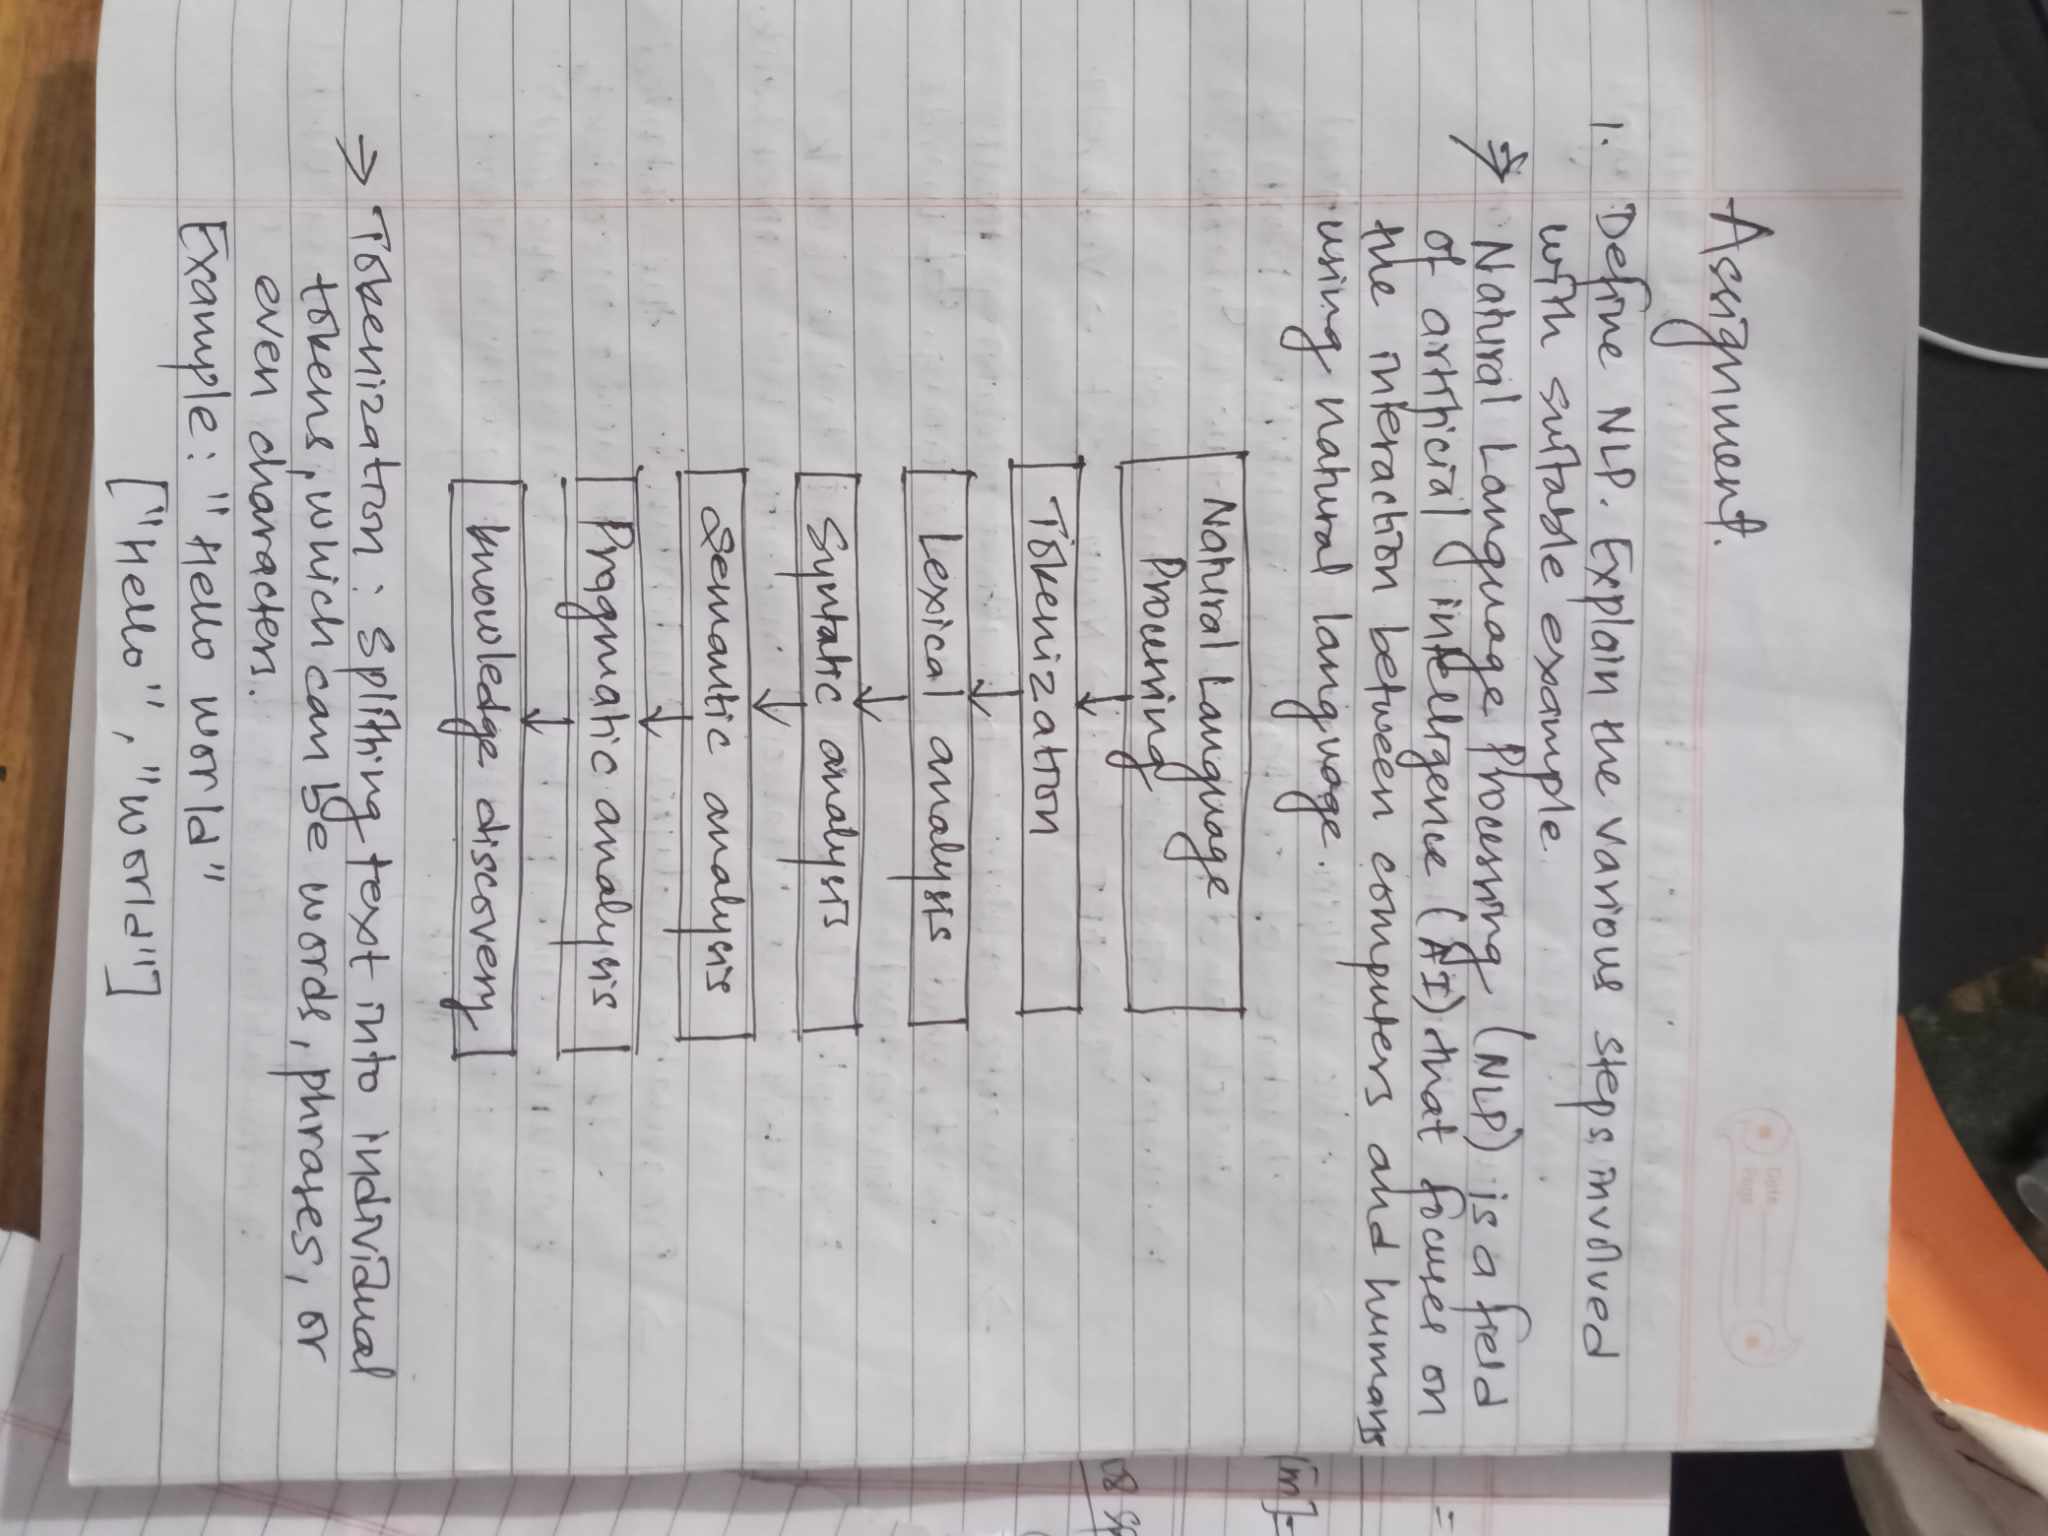 Date
Page
Assignment.
1. Define NLP. Explain the various steps involved
with suitable example
⇒ Natural Language Processing (NLP) is a field
of artificial intelligence (AI) that focuses on
the interaction between computers and humans
using natural language.
Natural Language
Processing
↓
Tokenization
↓
Lexical analysis
↓
Syntatic analysis
↓
Semantic analysis
↓
Pragmatic analysis
↓
knowledge discovery
→ Tokenization : Splitting text into individual
tokens, which can be words, phrases, or
even characters.
Example: "Hello world"
["Hello", "world"]